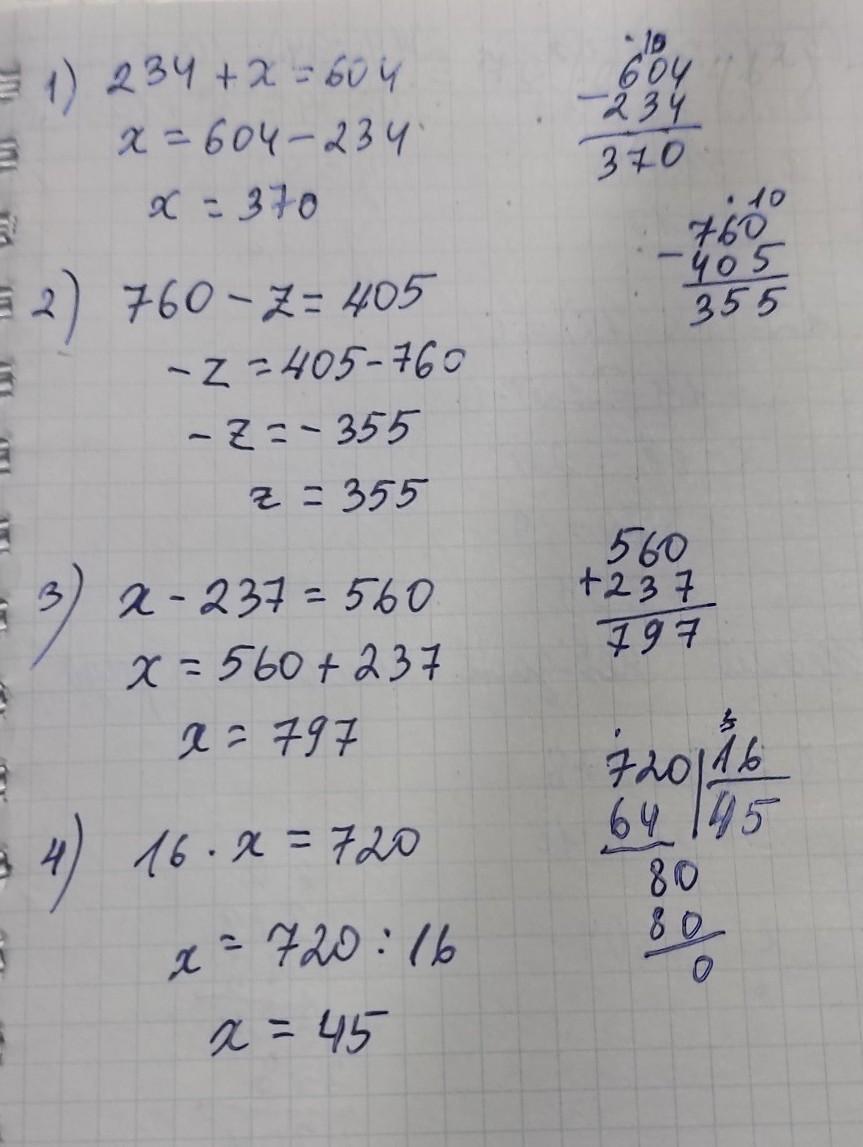 1) 234 + x = 604
x = 604 - 234
x = 370
. 10
604
- 234
370
2) 760 - z = 405
- z = 405 - 760
- z = - 355
z = 355
. 10
760
- 405
355
3) x - 237 = 560
x = 560 + 237
x = 797
560
+ 237
797
4) 16 · x = 720
x = 720 : 16
x = 45
.
720 | 16
64 | 45
80
80
0